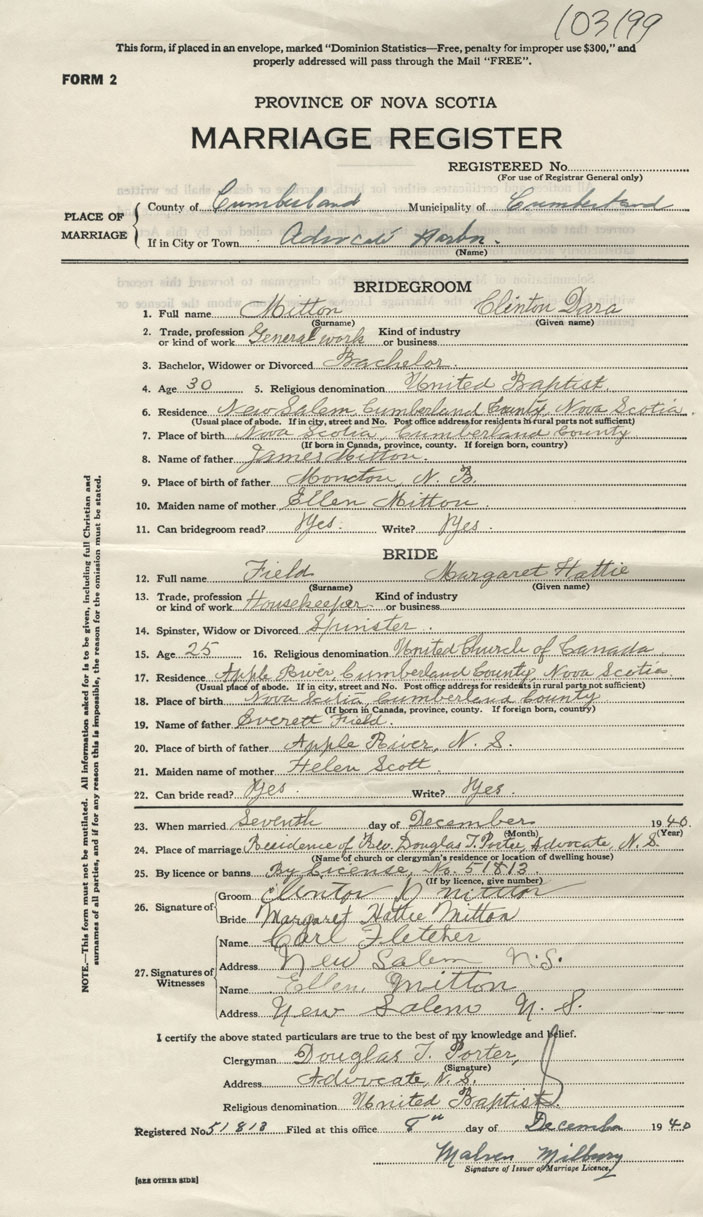 103199
This form, if placed in an envelope, marked "Dominion Statistics—Free, penalty for improper use $300," and
properly addressed will pass through the Mail "FREE".
FORM 2
PROVINCE OF NOVA SCOTIA
MARRIAGE REGISTER
REGISTERED No.
(For use of Registrar General only)
PLACE OF MARRIAGE
County of Cumberland Municipality of Cumberland
If in City or Town Advocate Harbor.
(Name)
BRIDEGROOM
1. Full name Mitton Clinton Dara
(Surname) (Given name)
2. Trade, profession or kind of work General work Kind of industry or business
3. Bachelor, Widower or Divorced Bachelor.
4. Age 30 5. Religious denomination United Baptist.
6. Residence New Salem, Cumberland County, Nova Scotia.
(Usual place of abode. If in city, street and No. Post office address for residents in rural parts not sufficient)
7. Place of birth Nova Scotia, Cumberland County
(If born in Canada, province, county. If foreign born, country)
8. Name of father James Mitton.
9. Place of birth of father Moncton, N. B.
10. Maiden name of mother Ellen Mitton.
11. Can bridegroom read? Yes. Write? Yes.
BRIDE
12. Full name Field Margaret Hattie
(Surname) (Given name)
13. Trade, profession or kind of work Housekeeper. Kind of industry or business
14. Spinster, Widow or Divorced Spinster.
15. Age 25 16. Religious denomination United Church of Canada
17. Residence Apple River, Cumberland County, Nova Scotia
(Usual place of abode. If in city, street and No. Post office address for residents in rural parts not sufficient)
18. Place of birth Nova Scotia, Cumberland County
(If born in Canada, province, county. If foreign born, country)
19. Name of father Everett Field.
20. Place of birth of father Apple River, N. S.
21. Maiden name of mother Helen Scott
22. Can bride read? Yes. Write? Yes.
23. When married Seventh day of December 1940.
(Month) (Year)
24. Place of marriage Residence of Rev. Douglas T. Porter, Advocate, N. S.
(Name of church or clergyman's residence or location of dwelling house)
25. By licence or banns By License, No. 51813.
(If by licence, give number)
26. Signature of
Groom Clinton D Mitton
Bride Margaret Hattie Mitton
27. Signatures of Witnesses
Name Carl Fletcher
Address New Salem N.S.
Name Ellen Mitton
Address New Salem N. S.
I certify the above stated particulars are true to the best of my knowledge and belief.
Clergyman Douglas T. Porter,
(Signature)
Address Advocate, N. S.
Religious denomination United Baptist.
Registered No. 51813 Filed at this office 8th day of December 1940
Malven Milbury
Signature of Issuer of Marriage Licence
[SEE OTHER SIDE]
NOTE.—This form must not be mutilated. All information asked for is to be given, including full Christian and
surnames of all parties, and if for any reason this is impossible, the reason for the omission must be stated.